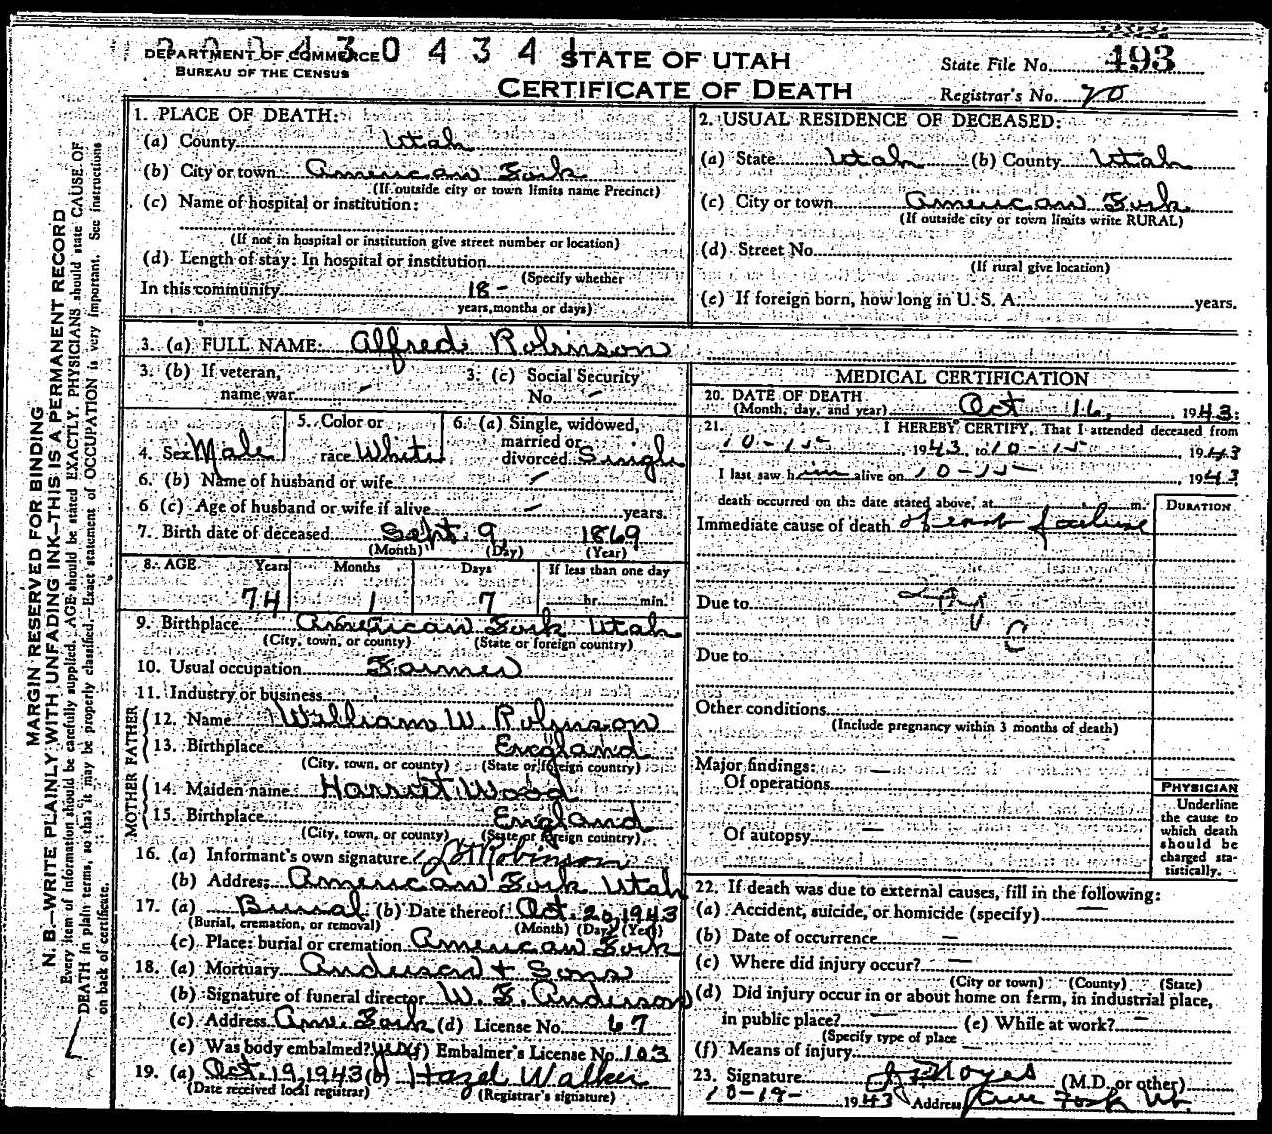 DEPARTMENT OF COMMERCE 0 4 3 4 1 STATE OF UTAH
BUREAU OF THE CENSUS
CERTIFICATE OF DEATH
State File No. 493
Registrar's No. 70
MARGIN RESERVED FOR BINDING
N. B.—WRITE PLAINLY WITH UNFADING INK—THIS IS A PERMANENT RECORD
Every item of information should be carefully supplied. AGE should be stated EXACTLY. PHYSICIANS should state CAUSE OF
DEATH in plain terms, so that it may be properly classified. Exact statement of OCCUPATION is very important. See instructions
on back of certificate.
1. PLACE OF DEATH:
(a) County Utah
(b) City or town American Fork
(If outside city or town limits name Precinct)
(c) Name of hospital or institution:
(If not in hospital or institution give street number or location)
(d) Length of stay: In hospital or institution
(Specify whether
In this community 18 -
years, months or days)
2. USUAL RESIDENCE OF DECEASED:
(a) State Utah (b) County Utah
(c) City or town American Fork
(If outside city or town limits write RURAL)
(d) Street No.
(If rural give location)
(e) If foreign born, how long in U. S. A. years.
3. (a) FULL NAME: Alfred Robinson
3. (b) If veteran,
name war -
3. (c) Social Security
No. -
4. Sex Male
5. Color or
race White
6. (a) Single, widowed,
married or
divorced Single
6. (b) Name of husband or wife -
6 (c) Age of husband or wife if alive - years.
7. Birth date of deceased Sept. 9, 1869
(Month) (Day) (Year)
8. AGE Years Months Days If less than one day
74 1 7 hr. min.
9. Birthplace American Fork Utah
(City, town, or county) (State or foreign country)
10. Usual occupation Farmer
11. Industry or business
FATHER
12. Name William W. Robinson
13. Birthplace England
(City, town, or county) (State or foreign country)
MOTHER
14. Maiden name Harriet Wood
15. Birthplace England
(City, town, or county) (State or foreign country)
16. (a) Informant's own signature Robinson
(b) Address American Fork Utah
17. (a) Burial (b) Date thereof Oct. 20, 1943
(Burial, cremation, or removal) (Month) (Day) (Year)
(c) Place: burial or cremation American Fork
18. (a) Mortuary Anderson + Sons
(b) Signature of funeral director W. F. Anderson
(c) Address Am. Fork (d) License No. 67
(e) Was body embalmed? yes (f) Embalmer's License No. 103
19. (a) Oct. 19, 1943 (b) Hazel Walker
(Date received local registrar) (Registrar's signature)
MEDICAL CERTIFICATION
20. DATE OF DEATH
(Month, day, and year) Oct 16, 1943.
21. I HEREBY CERTIFY, That I attended deceased from
10-15 1943, to 10-15 1943
I last saw him alive on 10-15, 1943
death occurred on the date stated above, at m.
DURATION
Immediate cause of death Heart failure
Due to
Due to
Other conditions
(Include pregnancy within 3 months of death)
Major findings:
Of operations —
Of autopsy —
PHYSICIAN
Underline
the cause to
which death
should be
charged sta-
tistically.
22. If death was due to external causes, fill in the following:
(a) Accident, suicide, or homicide (specify) —
(b) Date of occurrence —
(c) Where did injury occur? —
(City or town) (County) (State)
(d) Did injury occur in or about home on farm, in industrial place,
in public place? — (e) While at work? —
(Specify type of place
(f) Means of injury —
23. Signature Noyes (M.D. or other)
10-19- 1943 Address Am Fork Ut.